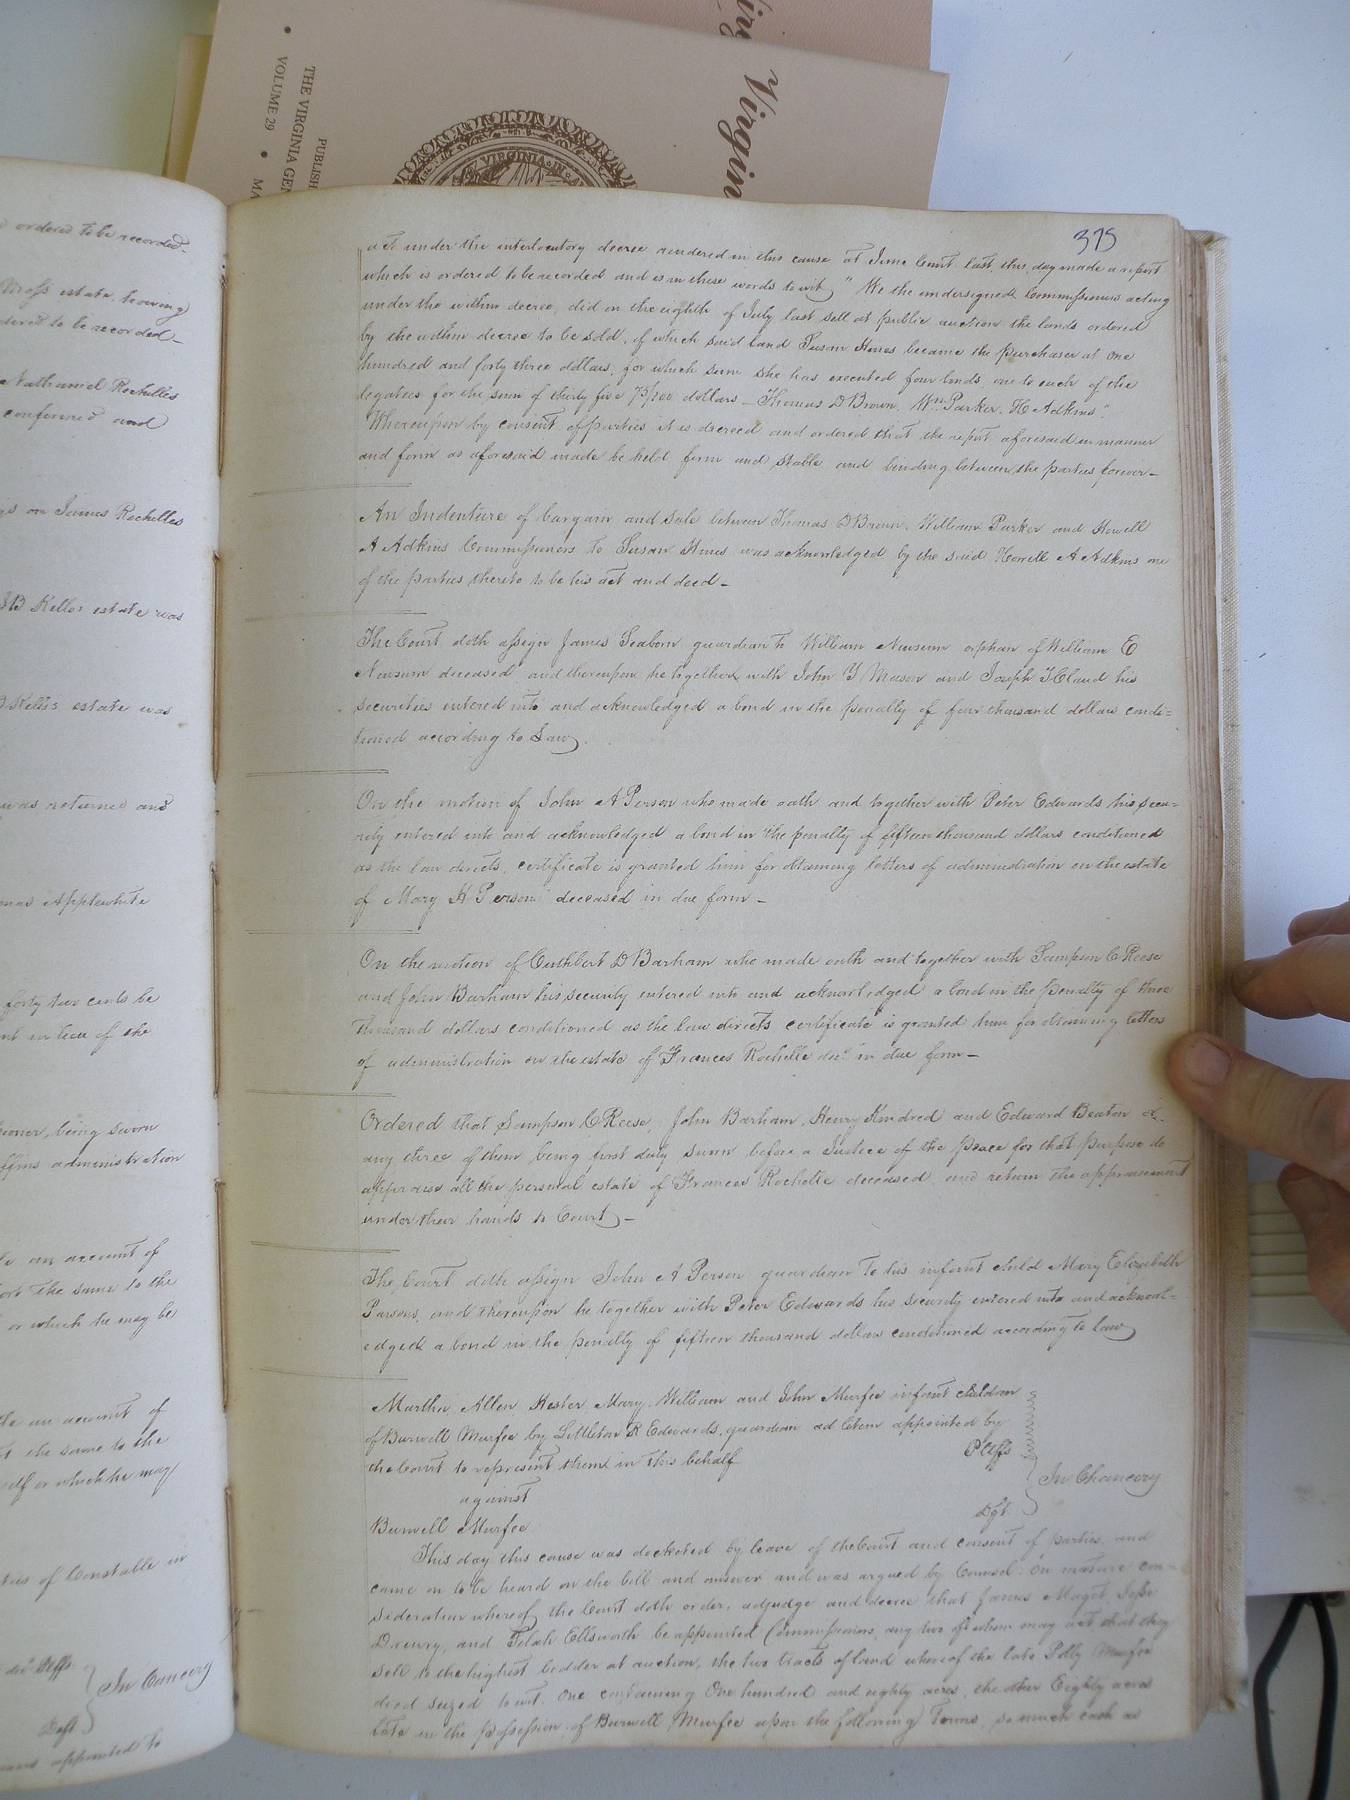 Virgin
PUBLISH
THE VIRGINIA GEN
VOLUME 29
MA
VIRGINIA
ordered to be recorded
Moss estate having
dered to be recorded
Nathaniel Rochelles
confirmed and
on James Rochelles
estate was
estate was
was returned and
mas Applewhite
forty two cents be
in lieu of the
being sworn
administration
an account of
the same to the
or which he may be
an account of
the same to the
self or which he may
of Constable in
decd Plffs
In Cancery
Deft
appointed to
375
act under the interlocutory decree rendered in this cause at June Court last, this day made a report
which is ordered to be recorded and is in these words to wit, "We the undersigned Commissioners acting
under the within decree, did on the eighth of July last sell at public auction the lands ordered
by the within decree to be sold, of which said land Susan Hines became the purchaser at one
hundred and forty three dollars, for which sum she has executed four bonds, one to each of the
legatees for the sum of thirty five 75/100 dollars - Thomas D Brown, Wm Parker, H Adkins".
Whereupon by consent of parties it is decreed and ordered that the report aforesaid in manner
and form as aforesaid made be held firm and stable and binding between the parties forever -
An Indenture of bargain and sale between Thomas D Brown, William Parker and Howell
A Adkins Commissioners to Susan Hines was acknowledged by the said Howell A Adkins one
of the parties thereto to be his act and deed -
The Court doth assign James Seaborn guardian to William Newsum orphan of William E
Newsum deceased and thereupon he together with John Y Mason and Joseph T Claud his
securities entered into and acknowledged a bond in the penalty of four thousand dollars condi=
tioned according to Law
On the motion of John A Person who made oath and together with Peter Edwards his secu=
rity entered into and acknowledged a bond in the penalty of fifteen thousand dollars conditioned
as the law directs, certificate is granted him for obtaining letters of administration on the estate
of Mary H Person deceased in due form -
On the motion of Cuthbert D Barham who made oath and together with Sampson C Reese
and John Barham his security entered into and acknowledged a bond in the penalty of three
thousand dollars conditioned as the law directs certificate is granted him for obtaining letters
of administration on the estate of Frances Rochelle decd in due form -
Ordered that Sampson C Reese, John Barham, Henry Kindred and Edward Beaton or
any three of them being first duly sworn before a Justice of the peace for that purpose do
appraise all the personal estate of Frances Rochelle deceased and return the appraisement
under their hands to Court -
The Court doth assign John A Person guardian to his infant child Mary Elizabeth
Parsons, and thereupon he together with Peter Edwards his security entered into and acknowl=
edged a bond in the penalty of fifteen thousand dollars conditioned according to law
Martha Allen Hester Mary William and John Murfee infant children
of Burwell Murfee by Littleton R Edwards, guardian ad litem appointed by
the Court to represent them in this behalf Plffs
against In Chancery
Burwell Murfee Dft
This day this cause was docketed by leave of the Court and consent of parties, and
came on to be heard on the bill and answer and was argued by Counsel. On mature con-
sideration whereof the Court doth order, adjudge and decree that James Maget, Jesse
Drewry, and Ellsworth be appointed Commissioners, any two of whom may act that they
sell to the highest bidder at auction, the two tracts of land whereof the late Polly Murfee
died seized to wit, One containing One hundred and eighty acres, the other Eighty acres
late in the possession of Burwell Murfee upon the following Terms, so much cash as